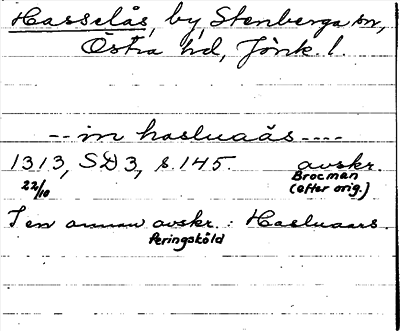 Hasselås, by, Stenberga sn,
Östra hd, Jönk. l.
-- in hasluaås ----
1313, SD3, s. 145. avskr.
22/10 Brocman
(efter orig.)
I en annan avskr.: Hasluaars.
Peringsköld